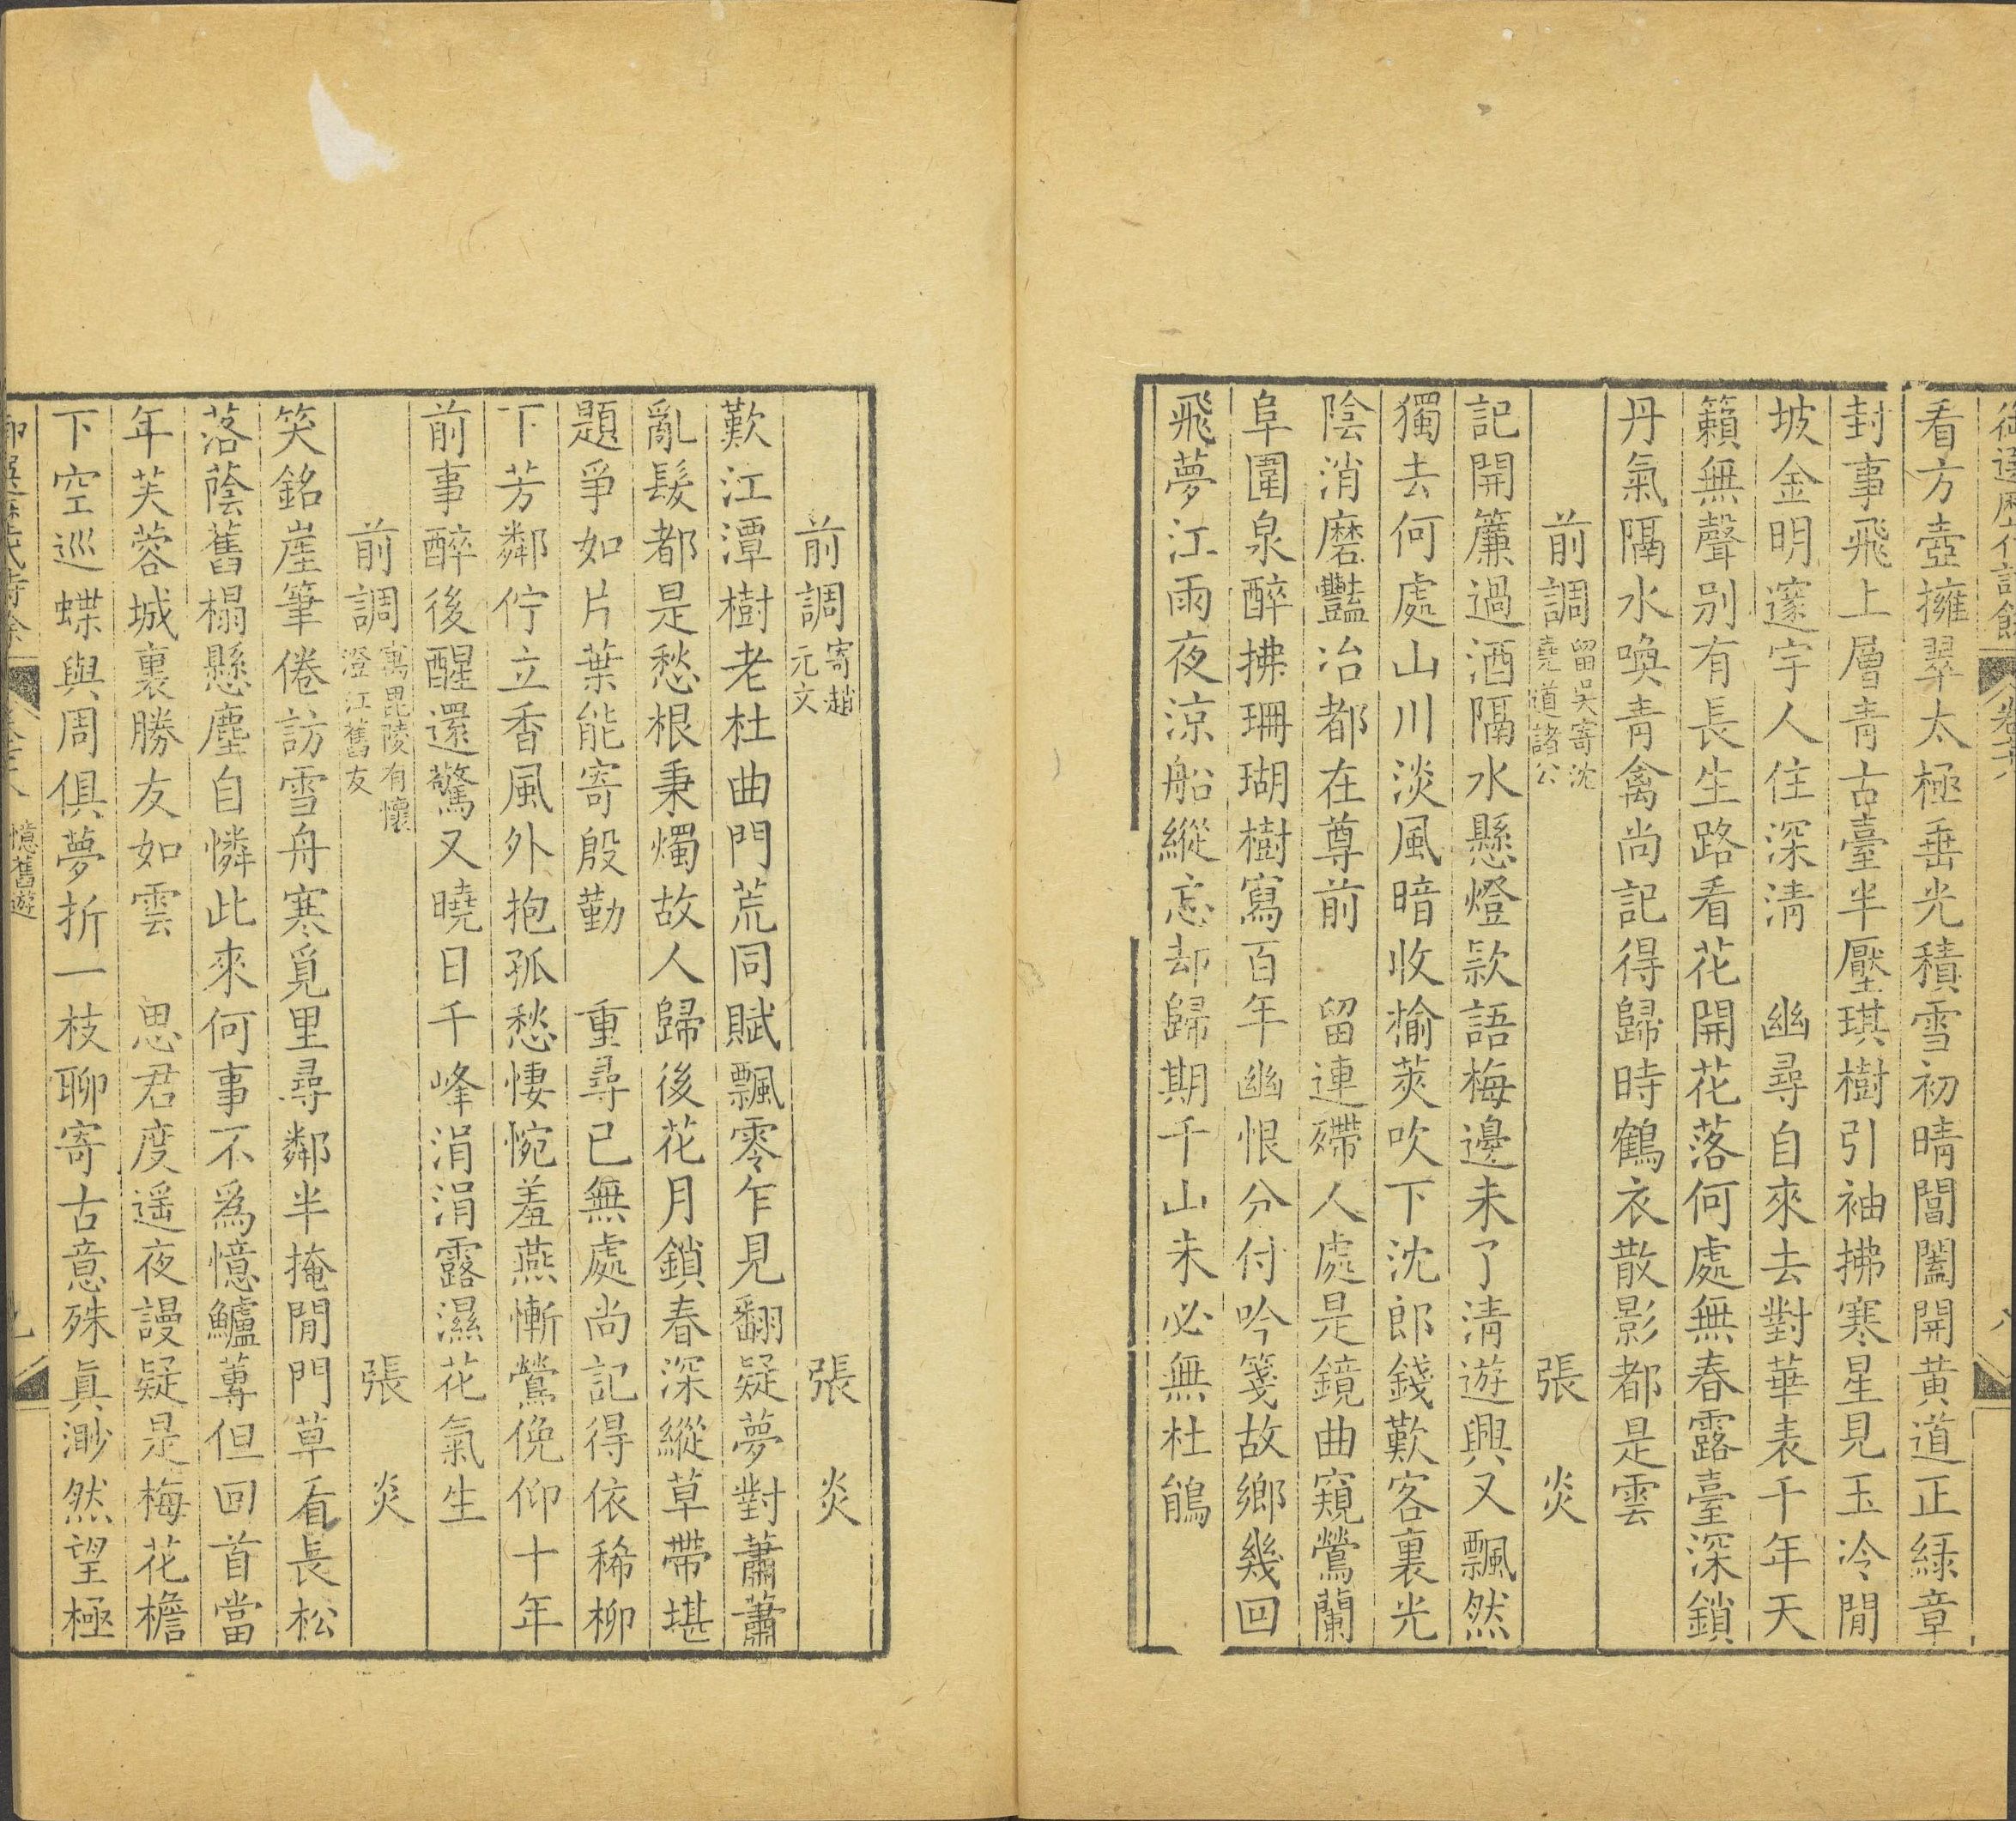 御選歷代詩餘 卷七十八 八
看方壺擁翠太極垂光積雪初晴閶闔開黃道正緑章
封事飛上層青古臺半壓琪樹引袖拂寒星見玉冷閒
坡金明邃宇人住深淸　幽尋自來去對華表千年天
籟無聲别有長生路看花開花落何處無春露臺深鎖
丹氣隔水喚青禽尚記得歸時鶴衣散影都是雲
前調 留吳寄沈堯道諸公 張炎
記開簾過酒隔水懸燈款語梅邊未了清遊興又飄然
獨去何處山川淡風暗收榆莢吹下沈郎錢歎客裏光
陰消磨豔冶都在尊前　留連殢人處是鏡曲窺鶯蘭
阜圍泉醉拂珊瑚樹寫百年幽恨分付吟箋故鄉幾回
飛夢江雨夜涼船縱忘却歸期千山未必無杜鵑
前調 寄趙元文 張炎
歎江潭樹老杜曲門荒同賦飄零乍見翻疑夢對蕭蕭
亂髮都是愁根秉燭故人歸後花月鎖春深縱草帶堪
題爭如片葉能寄殷勤　重尋已無處尚記得依稀柳
下芳鄰佇立香風外抱孤愁悽惋羞燕慚鶯俛仰十年
前事醉後醒還驚又曉日千峰涓涓露濕花氣生
前調 寓毘陵有懷澄江舊友 張炎
笑銘崖筆倦訪雪舟寒覓里尋鄰半掩閒門草看長松
落蔭舊榻懸塵自憐此來何事不爲憶鱸蓴但回首當
年芙蓉城裏勝友如雲　思君度遥夜謾疑是梅花檐
下空巡蝶與周俱夢折一枝聊寄古意殊眞渺然望極
御選歷代詩餘 憶舊遊 九